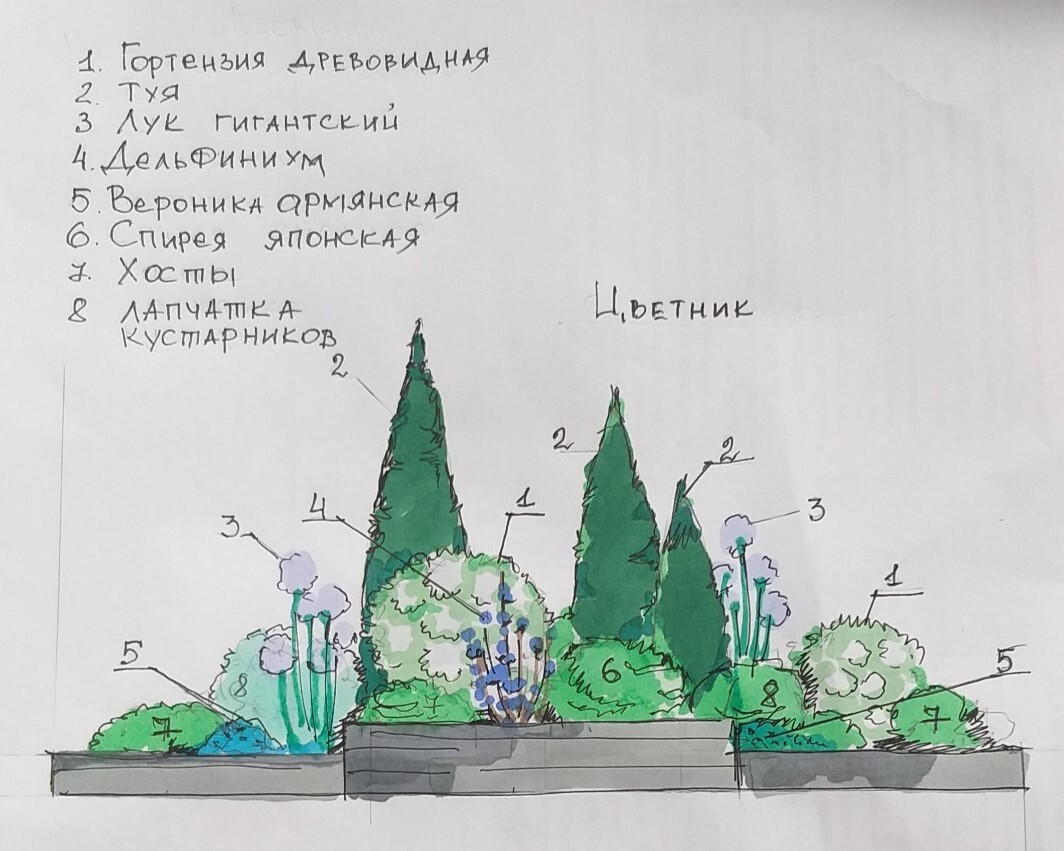 1. Гортензия древовидная
2. Туя
3 Лук гигантский
4. Дельфиниум
5. Вероника армянская
6. Спирея японская
7. Хосты
8 Лапчатка
кустарников
Цветник
2
2
2
4
1
3
3
1
5
5
8
6
8
7
7
7